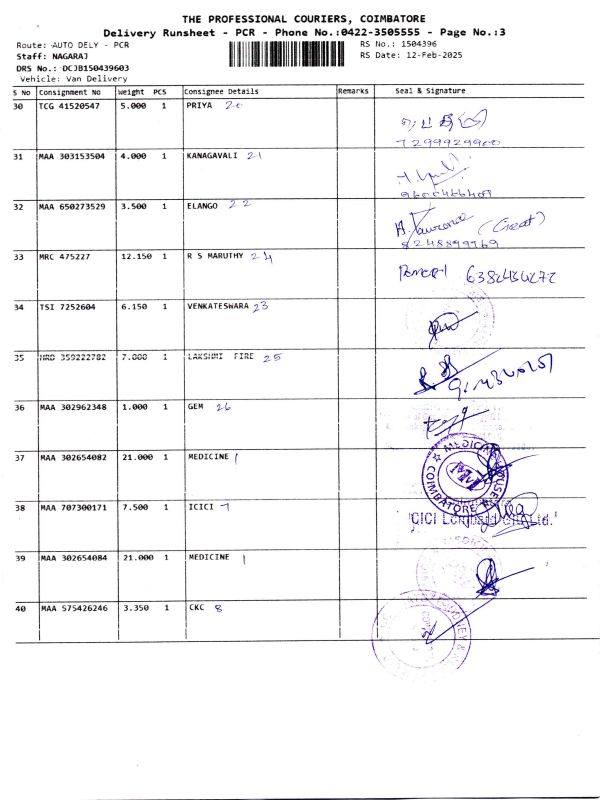 THE PROFESSIONAL COURIERS, COIMBATORE
Delivery Runsheet - PCR - Phone No.:0422-3505555 - Page No.:3
Route: AUTO DELY - PCR RS No.: 1504396
Staff: NAGARAJ RS Date: 12-Feb-2025
DRS No.: DCJB150439603
Vehicle: Van Delivery
S No Consignment No Weight PCS Consignee Details Remarks Seal & Signature
30 TCG 41520547 5.000 1 PRIYA 20
7299929900
31 MAA 303153504 4.000 1 KANAGAVALI 21
32 MAA 650273529 3.500 1 ELANGO 22
8248899969
33 MRC 475227 12.150 1 R S MARUTHY 24
34 TSI 7252604 6.150 1 VENKATESWARA 23
35 HRD 359222782 7.000 1 LAKSHMI FIRE 25
36 MAA 302962348 1.000 1 GEM 26
37 MAA 302654082 21.000 1 MEDICINE 1
COIMBATORE
38 MAA 707300171 7.500 1 ICICI 7
39 MAA 302654084 21.000 1 MEDICINE 1
40 MAA 575426246 3.350 1 CKC 8